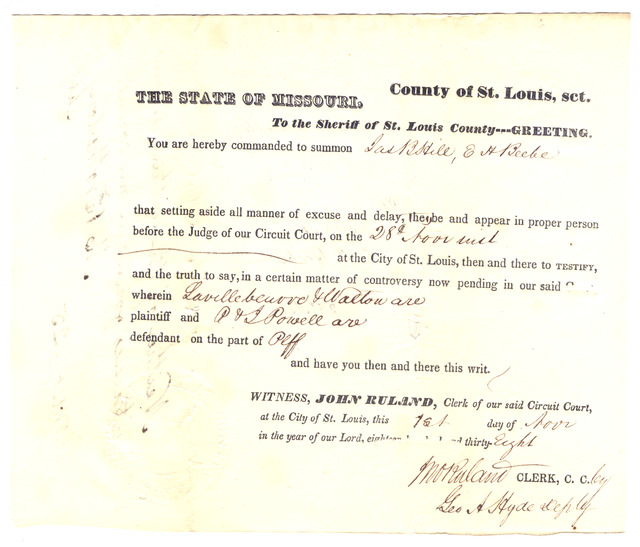 THE STATE OF MISSOURI. County of St. Louis, sct.
To the Sheriff of St. Louis County---GREETING.
You are hereby commanded to summon Jas B Hill, E H Beebe
that setting aside all manner of excuse and delay, they be and appear in proper person
before the Judge of our Circuit Court, on the 28th Novr inst
at the City of St. Louis, then and there to TESTIFY,
and the truth to say, in a certain matter of controversy now pending in our said
wherein & Walton are
plaintiff and P & J Powell are
defendant on the part of Plff
and have you then and there this writ.
WITNESS, JOHN RULAND, Clerk of our said Circuit Court,
at the City of St. Louis, this 1st day of Novr
in the year of our Lord, thirty-Eight
Jno Ruland CLERK, C. C. by
Geo A Hyde Depty